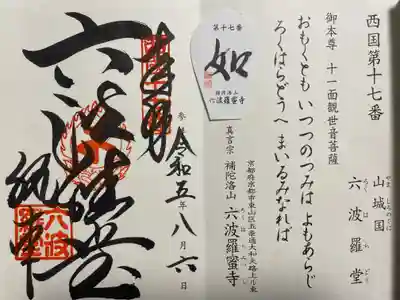 西国第十七番
山城国
やましろのくに
六波羅堂
ろくはらどう
御本尊 十一面観世音菩薩
おもくとも いつつのつみは よもあらじ
ろくはらどうへ まいるみなれば
京都府京都市東山区五条通大和大路上ル東
真言宗 補陀洛山 六波羅蜜寺
第十七番
如
補陀洛山
六波羅蜜寺
奉拝
参拝
令和五年八月六日
六波羅堂